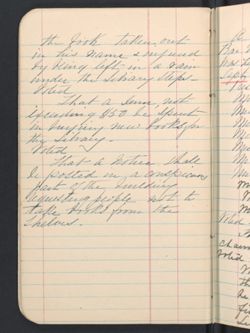 the book taken out
in his name & injured
by being left in a rain
under the Library steps.
Voted
That a sum not
exceeding $50 be spent
in buying new books for
the Library.
Voted
That a notice shall
be posted in a conspicuous
part of the building
requesting people not to
take books from the
shelves.
Voted
Voted